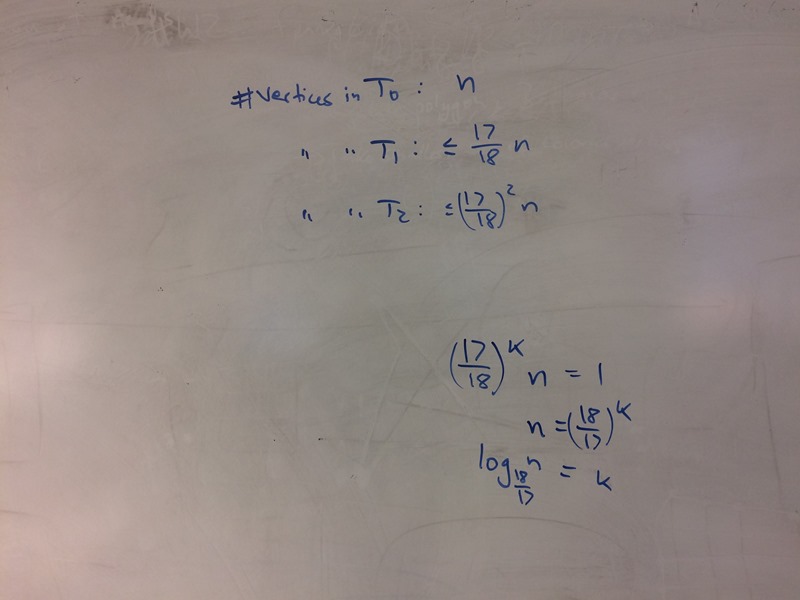 #vertices in T₀ : n
" " T₁ : ≤ 17/18 n
" " T₂ : ≤ (17/18)² n
(17/18)^k n = 1
n = (18/17)^k
log_{18/17} n = k